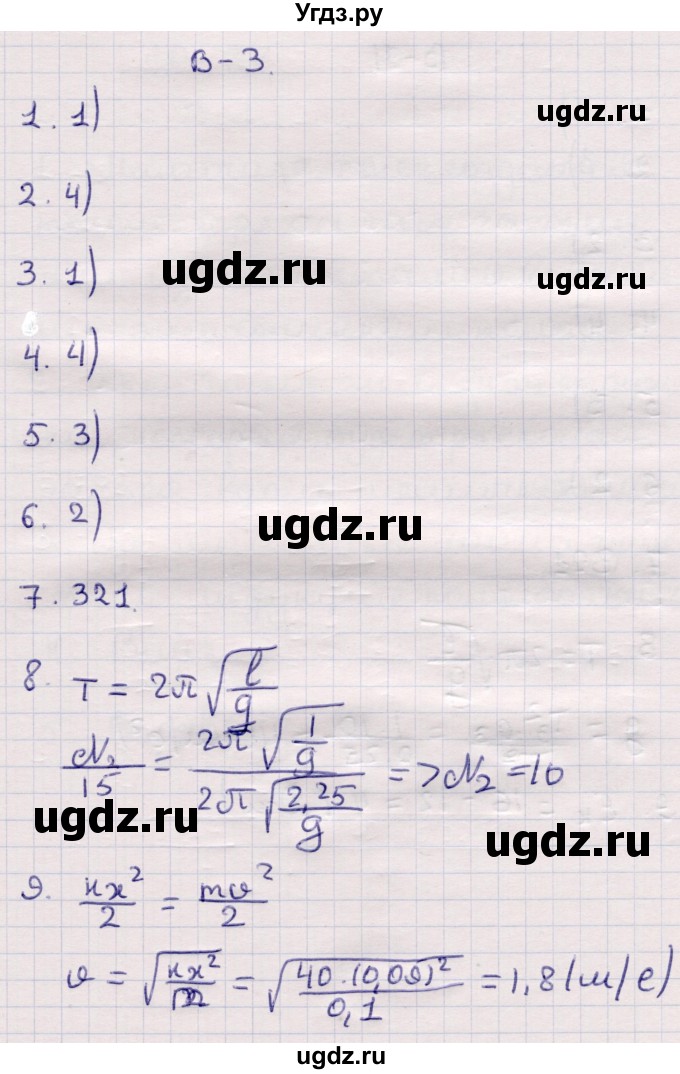 Угдз.ру
В-3.
1. 1)
ugdz.ru
2. 4)
3. 1)
ugdz.ru
ugdz.ru
4. 4)
5. 3)
6. 2)
ugdz.ru
7. 321.
8. T = 2π√(l/g)
N₂/15 = 2π√(1/g) / 2π√(2,25/g) => N₂ = 10
ugdz.ru
ugdz.ru
9. кx²/2 = mv²/2
v = √(кx²/m) = √(40·(0,09)²/0,1) = 1,8 (м/с)
ugdz.ru